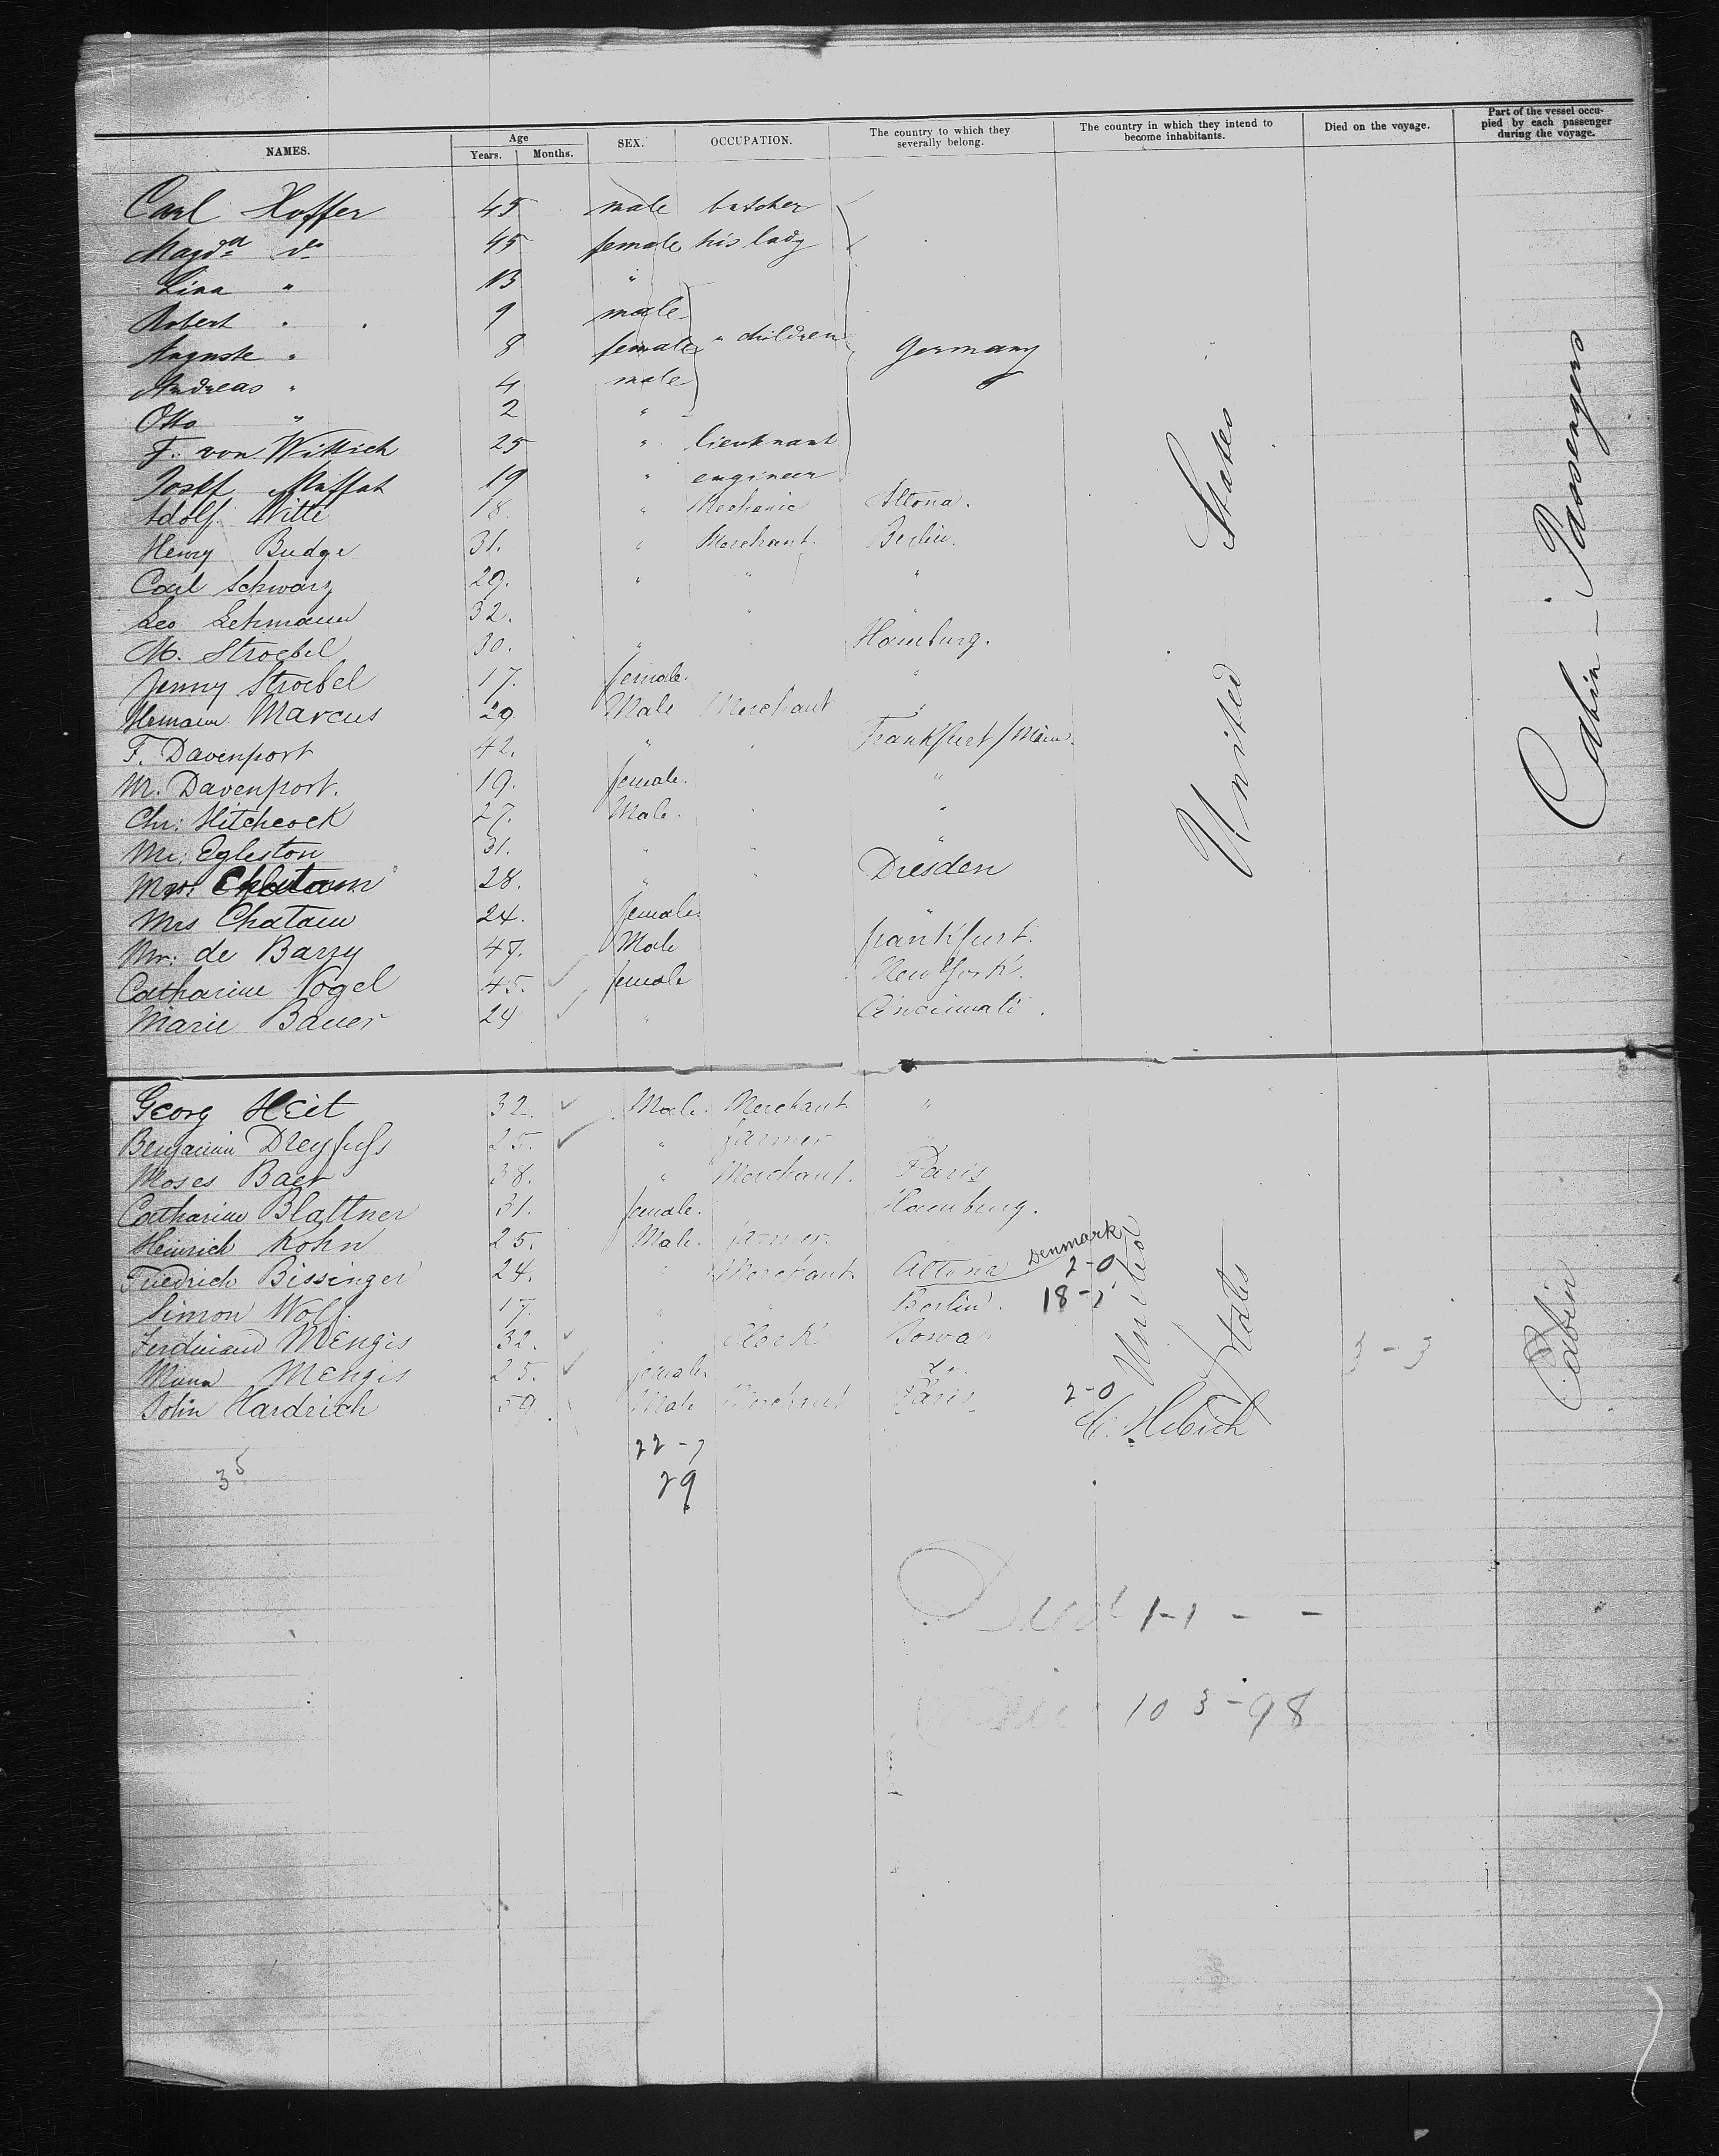 NAMES. Age Years. Months. SEX. OCCUPATION. The country to which they severally belong. The country in which they intend to become inhabitants. Died on the voyage. Part of the vessel occupied by each passenger during the voyage.
Carl Hoffer 45 male butcher
Magda do 45 female his lady
Lina " 13 "
Robert " 9 male
Auguste " 8 female " children Germany
Andreas " 4 male
Otto " 2 "
F. von Wittich 25 " lieutnant
Josef Muffat 19 " engineer
Adolf Witte 18. " Mechanic Altona.
Henry Budge 31. " Merchant. Berlin.
Carl Schwarz 29. " " "
Leo Lehmann 32. " "
M. Stroebel 30. " Hamburg.
Jenny Stroebel 17. female. "
Hermann Marcus 29. Male Merchant "
F. Davenport 42. " " Frankfurt/Main.
M. Davenport. 19. female. "
Chr: Hitchcock 27. Male. " "
Mr: Egleston 31. " " "
Mr. Chatam 28. " " Dresden
Mrs Chatam 24. female. "
Mr: de Barry 47. Male frankfurt.
Catharine Vogel 45. female New York.
Marie Bauer 24 " Cincinnati.
United States
Cabin - Passengers
Georg Heit 32. Male. Merchant "
Benjamin Dreyfuſs 25. " farmer "
Moses Baer 38. " Merchant. Paris
Catharine Blattner 31. female. Hamburg.
Heinrich Kohn 25. Male. farmer. "
Friedrich Bissinger 24. " Merchant. Altona Denmark 2-0
Simon Wolf. 17. " " Berlin. 18-5
Ferdinand Mengis 32. " Clerk Iowa
Minna Mengis 25. female. do.
John Hardrich 59. Male Merchant Paris 2-0
United States
3-3
Cabin
22-7
35
29
Died 1-1 - -
103-98